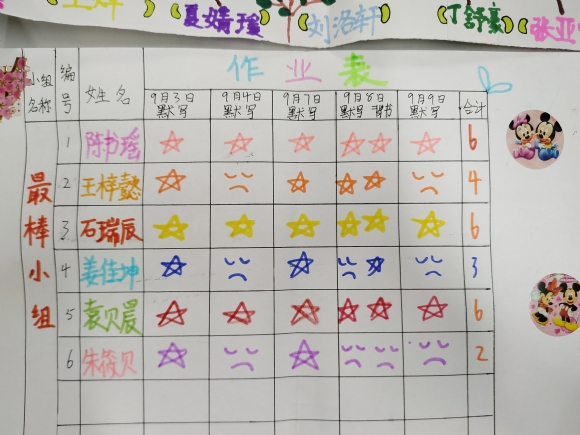 夏嫣瑶 刘洛轩 丁舒豪 张亚
作业表
小组名称 编号 姓名 9月3日默写 9月4日默写 9月7日默写 9月8日默写 背书 9月9日默写 合计
最棒小组
1 陈书瑶 6
2 王梓懿 4
3 石瑞辰 6
4 姜佳坤 3
5 袁贝晨 6
6 朱筱贝 2